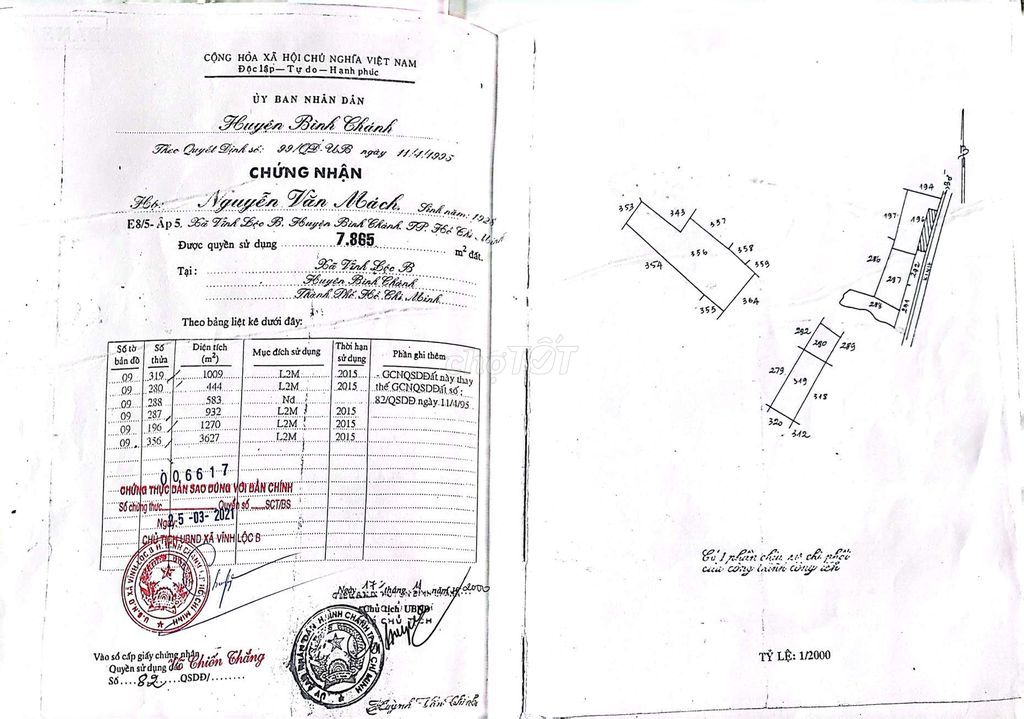 CỘNG HÒA XÃ HỘI CHỦ NGHĨA VIỆT NAM
Độc lập – Tự do – Hạnh phúc
ỦY BAN NHÂN DÂN
Huyện Bình Chánh
Theo Quyết Định số: 99/QĐ-UB ngày 11/4/1995
CHỨNG NHẬN
Hộ: Nguyễn Văn Mách. Sinh năm: 1928
E8/5- Ấp 5. Xã Vĩnh Lộc B, Huyện Bình Chánh. TP. Hồ Chí Minh
Được quyền sử dụng 7.865 m² đất.
Tại: Xã Vĩnh Lộc B
Huyện Bình Chánh
Thành Phố Hồ Chí Minh.
Theo bảng liệt kê dưới đây:
Số tờ bản đồ Số thửa Diện tích (m²) Mục đích sử dụng Thời hạn sử dụng Phần ghi thêm
09 319 1009 L2M 2015 - GCNQSDĐất này thay
09 280 444 L2M 2015 thế GCNQSDĐất số:
09 288 583 Nd 82/QSDĐ ngày 11/4/95
09 287 932 L2M 2015
09 196 1270 L2M 2015
09 356 3627 L2M 2015
006617
CHỨNG THỰC BẢN SAO ĐÚNG VỚI BẢN CHÍNH
Số chứng thực Quyển số SCT/BS
Ngày 25-03-2021
CHỦ TỊCH UBND XÃ VĨNH LỘC B
Ngày 17 tháng 4 năm 2000
Chủ tịch UBND
CHỦ TỊCH
Vào sổ cấp giấy chứng nhận
Quyền sử dụng đất
Số 82 QSDĐ/
Võ Chiến Thắng
Huỳnh Văn
353
343
337
356
358
359
354
364
355
194
197
196
286
287
242
288
291
292
290
289
279
319
318
320
312
Có 1 phần chịu sự chi phối
của công trình công ích
TỶ LỆ: 1/2000
chợTỐT